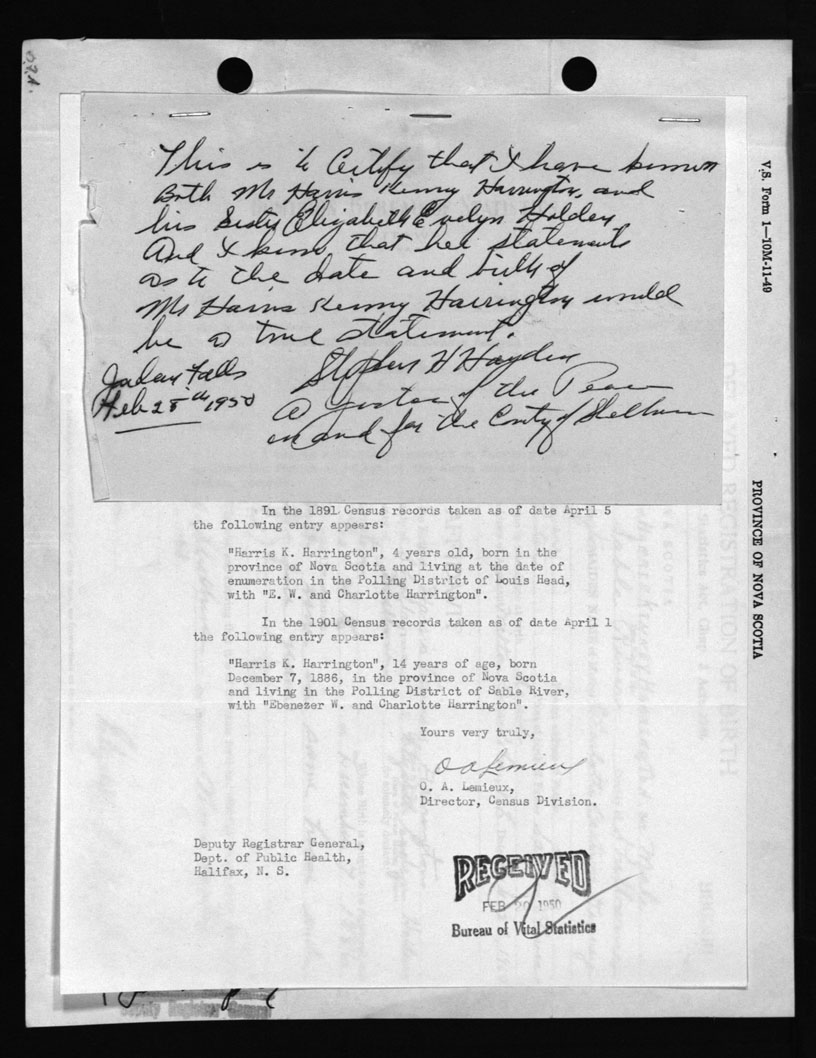 This is to Certify that I have known
Both Mr Harris Kenny Harrington, and
his Sister Elizabeth Evelyn Holden,
And I know that her statements
as to the date and birth of
Mr Harris Kenny Harrington would
be a true statement.
Stephen H Hayden
Jordan Falls
Feb 25th 1950
A Justice of the Peace
in and for the County of Shelburne
In the 1891 Census records taken as of date April 5
the following entry appears:
"Harris K. Harrington", 4 years old, born in the
province of Nova Scotia and living at the date of
enumeration in the Polling District of Louis Head,
with "E. W. and Charlotte Harrington".
In the 1901 Census records taken as of date April 1
the following entry appears:
"Harris K. Harrington", 14 years of age, born
December 7, 1886, in the province of Nova Scotia
and living in the Polling District of Sable River,
with "Ebenezer W. and Charlotte Harrington".
Yours very truly,
O A Lemieux
O. A. Lemieux,
Director, Census Division.
Deputy Registrar General,
Dept. of Public Health,
Halifax, N. S.
RECEIVED
FEB 20 1950
Bureau of Vital Statistics
V.S. Form 1—10M-11-49
PROVINCE OF NOVA SCOTIA